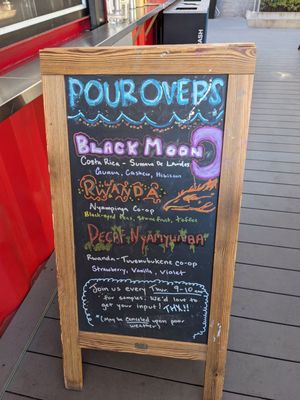 POUR OVERS
BLACK MOON
Costa Rica - Sumava De
Guava, Cashew, Hibiscus
RWANDA
Nyampinga Co-op
Black-aged Rum, Stonefruit, toffee
DECAF NYAMYUMBA
Rwanda - Tuvemubukene co-op
Strawberry, Vanilla, Violet
Join us every Thur. 9-10
for samples. We'd love to
get your input! THX!!
*(May be canceled upon poor
weather)